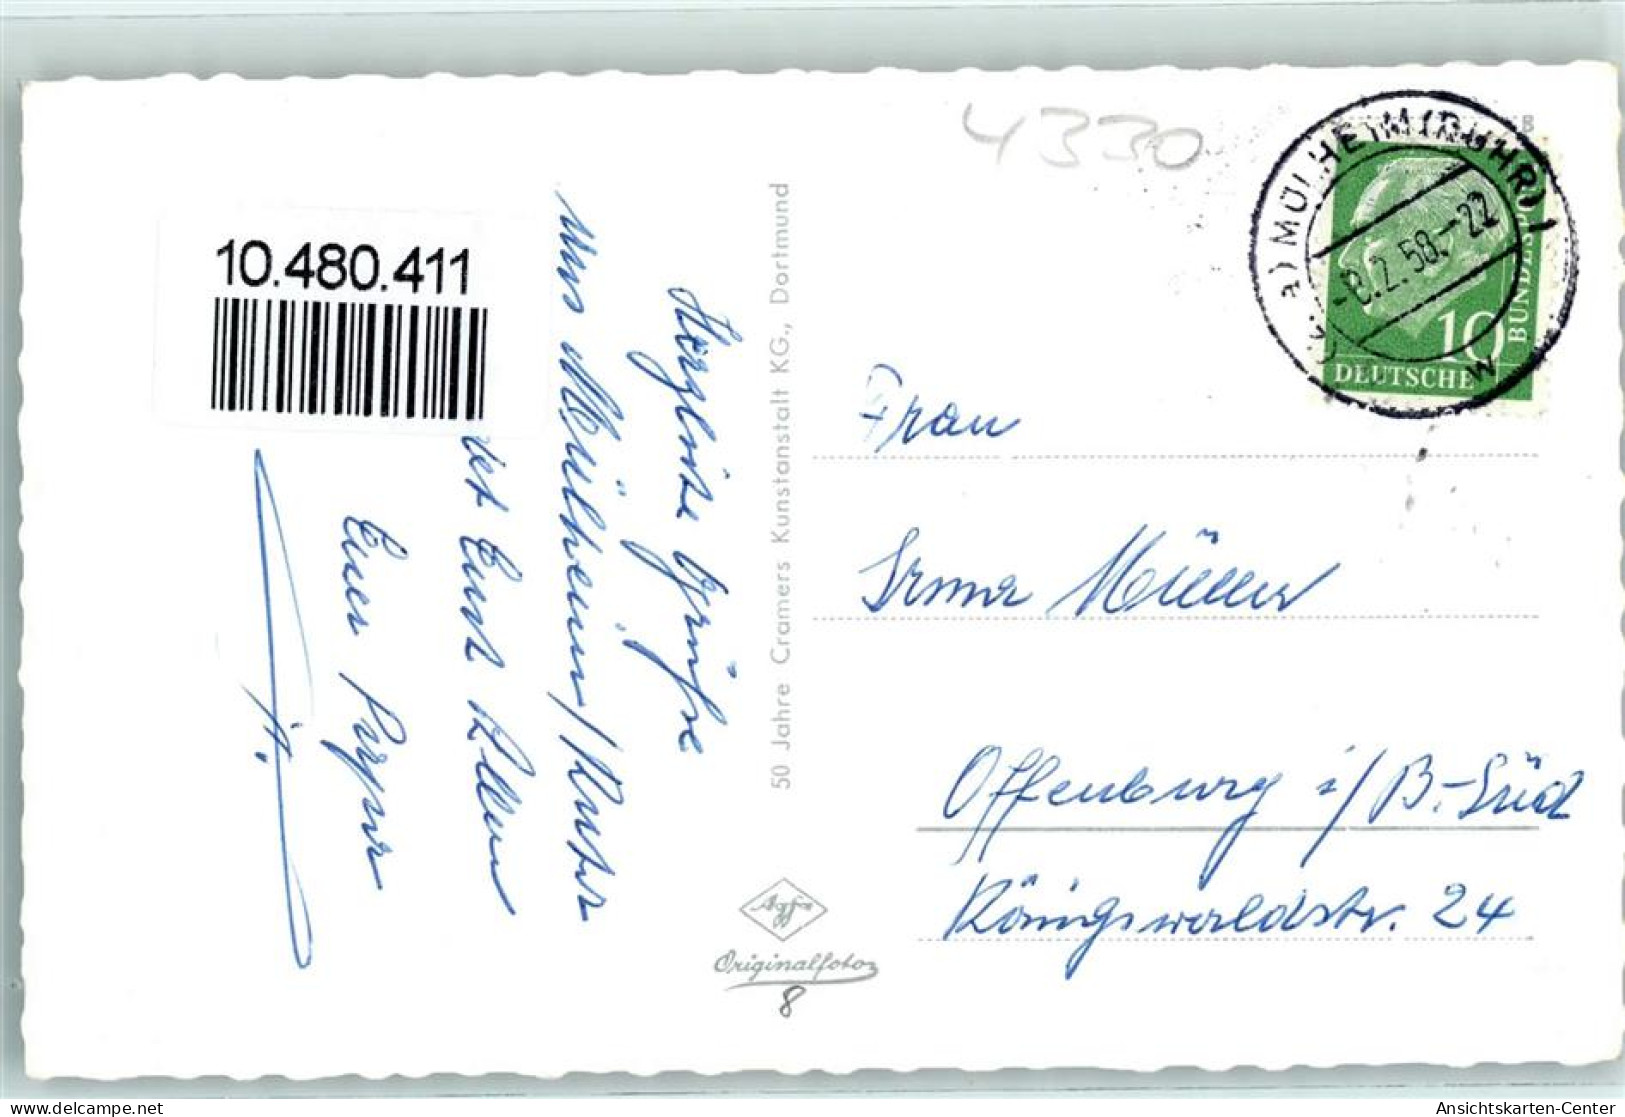 4330
10.480.411
Herzliche Grüße
aus Mülheim/Ruhr
Euch allen
Euer
50 Jahre Cramers Kunstanstalt KG., Dortmund
Agfa
Originalfoto
8
(22 a) MÜLHEIM (RUHR) 1
-8.2.58.-22
w
10
DEUTSCHE
BUNDESPO
B
Frau
Irma Müller
Offenburg i/B.-Süd
Königswaldstr. 24
Ansichtskarten-Center